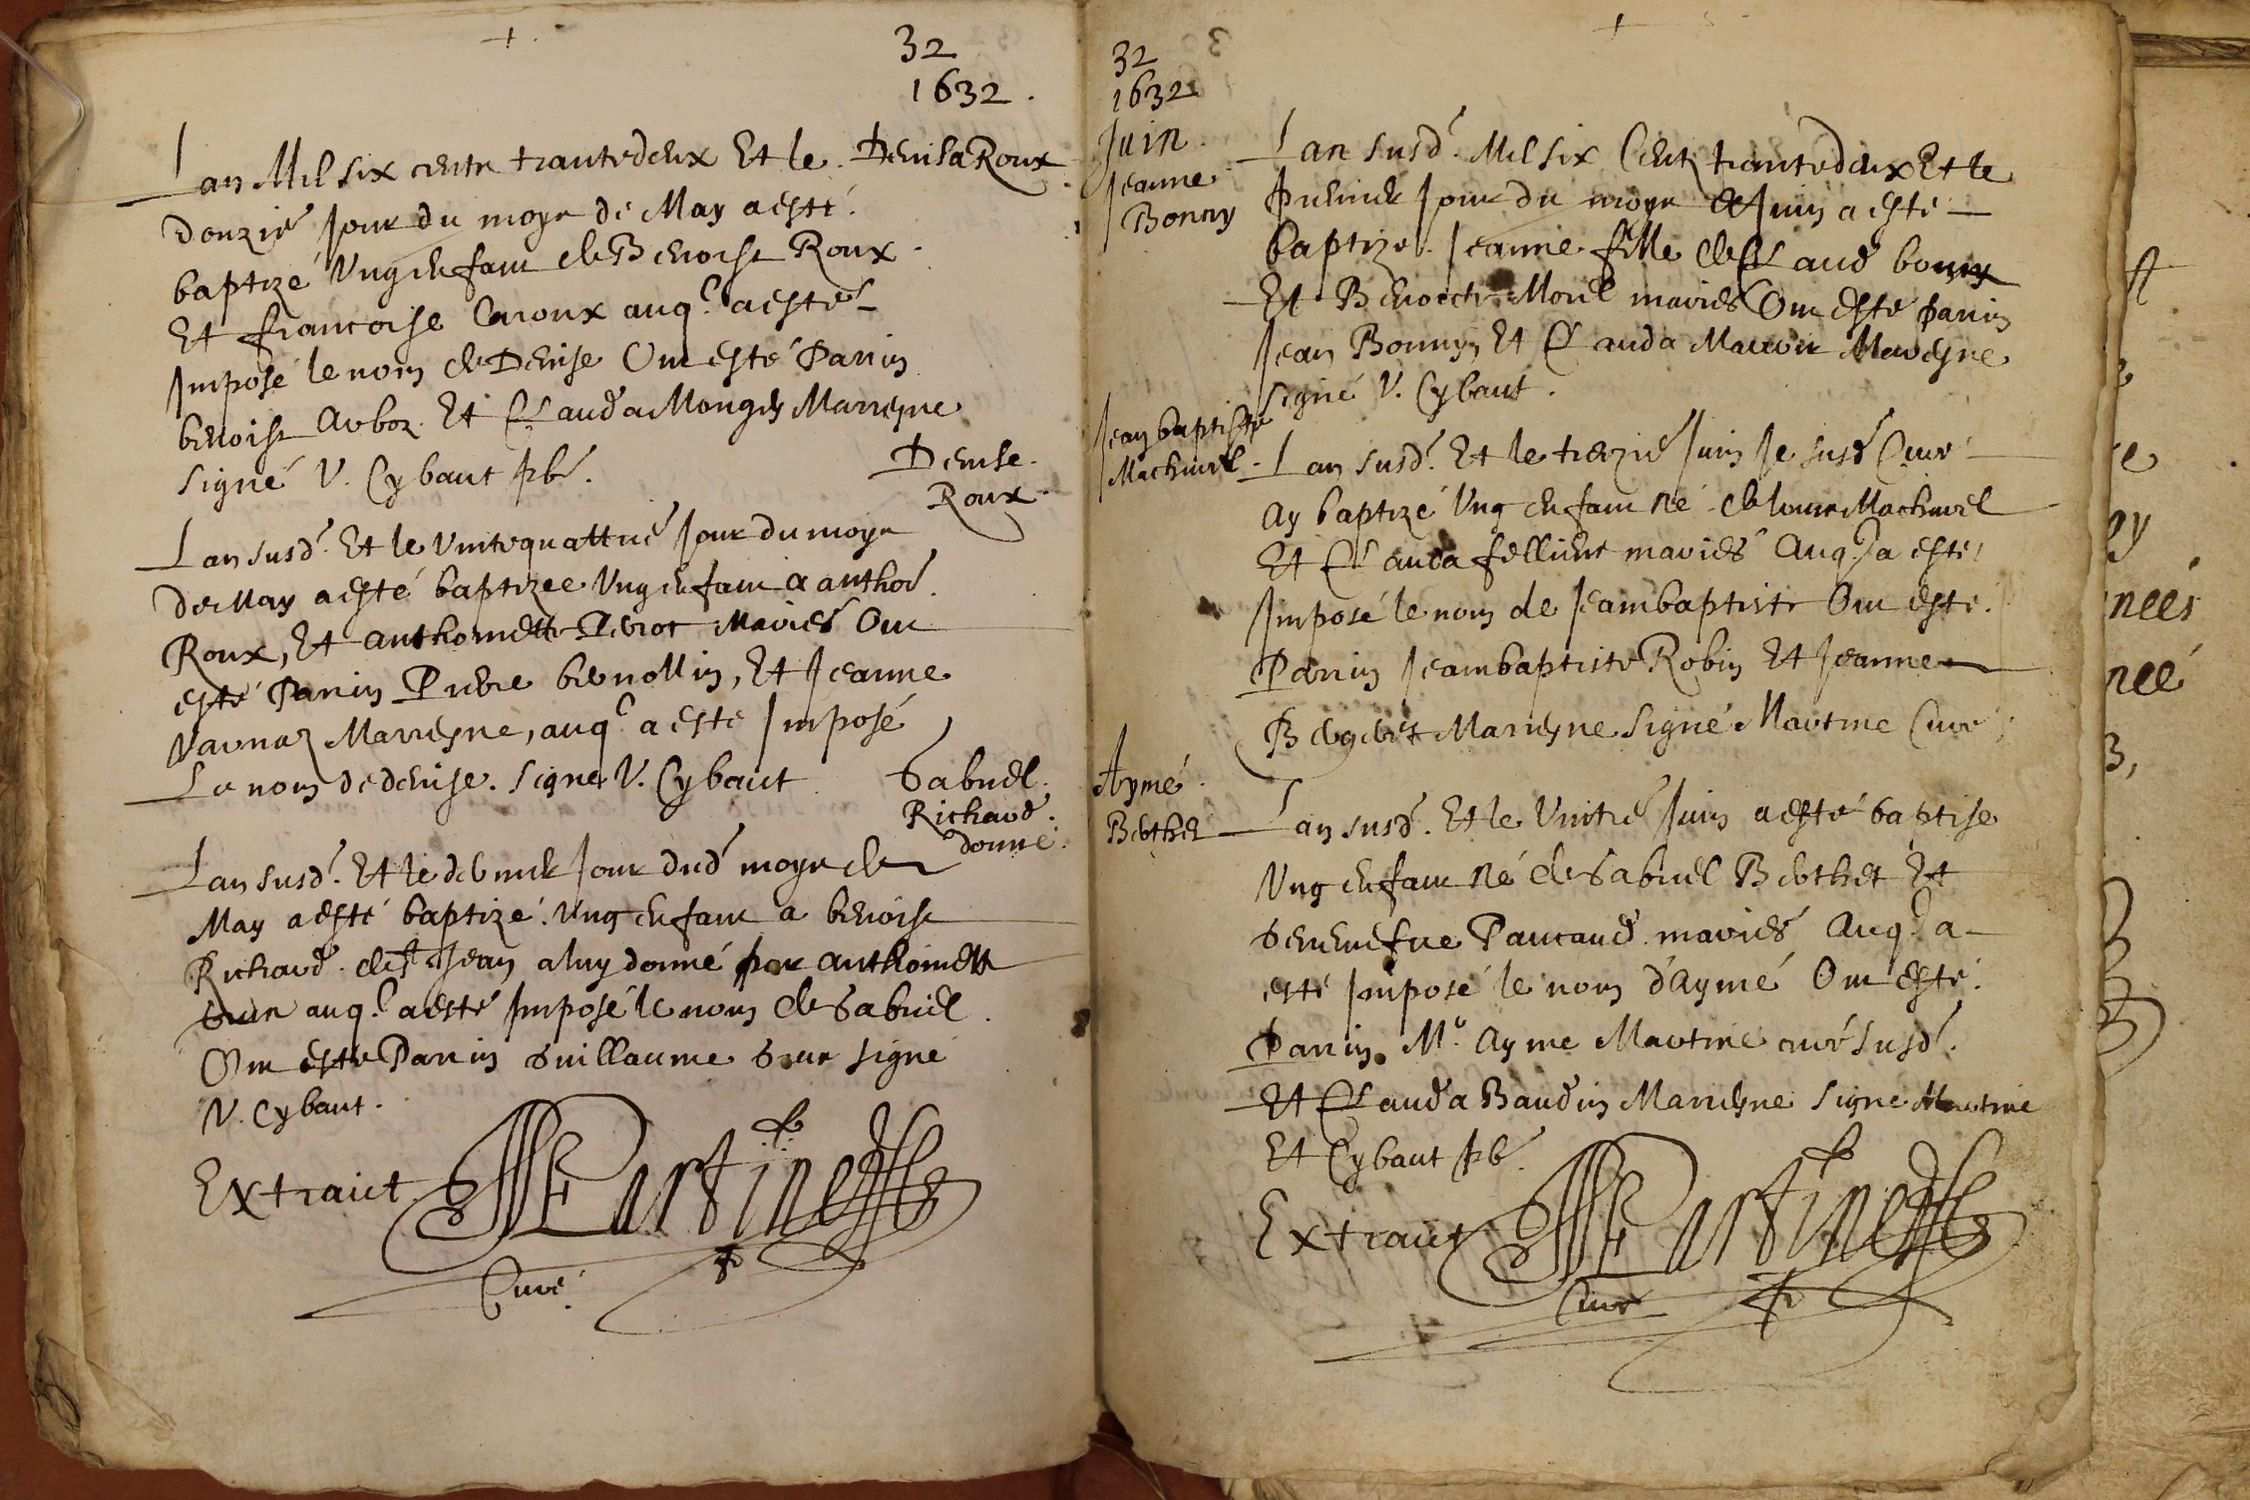 32
1632.
Denisa Roux
Lan Mil six cente trantedeux Et le
Douzie Jour du moys de May a esté
baptizé Ung enfant de Benoist Roux
Et francoise Caroux auq. a esté
Imposé le nom de Denise Ont esté Parrin
benoist Arboz Et Clauda Monges Marreyne
signé V. Cybaut pbr.
Denise
Roux
Lan susd. Et le Vintequattrie Jour du moys
de May a esté baptizee Ung enfant a anthoe
Roux, Et anthoinette Perrot Mariés Ont
esté Parrin Pierre bernollin, Et Jeanne
Varnaz Marreyne, auq. a este Imposé
Le nom de denise. signé V. Cybaut
Gabriel
Richard
donné
Lan susd. Et le dernier Jour dud moys de
May a esté baptizé. Ung enfant a benoist
Richard de St Jean a luy donné par anthoinette
auq. a esté Imposé le nom de Gabriel
Ont esté Parrin Guillaume signé
V. Cybaut.
Extraict MArtine
Curé
32
1632
Juin
Jeanne
Bonny
Lan susd. Mil six Cent trantedeux Et le
Premier Jour du moys de Juin a esté
baptize. Jeanne fille de Claud bonny
Et Benoicte Morel mariés Ont esté parrin
Jean Bonnyn Et Clauda Marreyne
signé V. Cybaut.
Jean baptiste
Machurel
Lan susd. Et le trezie Juin Je susd Curé
Ay baptizé Ung enfant né de louis Machurel
Et Clauda fellient mariés Auq. a esté
Imposé le nom de Jeanbaptiste Ont esté
Parrin Jeanbaptiste Robin Et Jeanne
Marreyne Signé Martine Curé
Aymé
Berthet
Lan susd. Et le Vintie Juin a esté baptise
Ung enfant né de Gabriel Berthet Et
Genevefue Paucaud mariés Auq. a
esté Imposé le nom d'Aymé Ont Esté
Parrin Mr. Ayme Martine curé susd.
Et Clauda Baudin Marreyne Signé Martine
Et Cybaut pbr.
Extraict MArtine
Curé